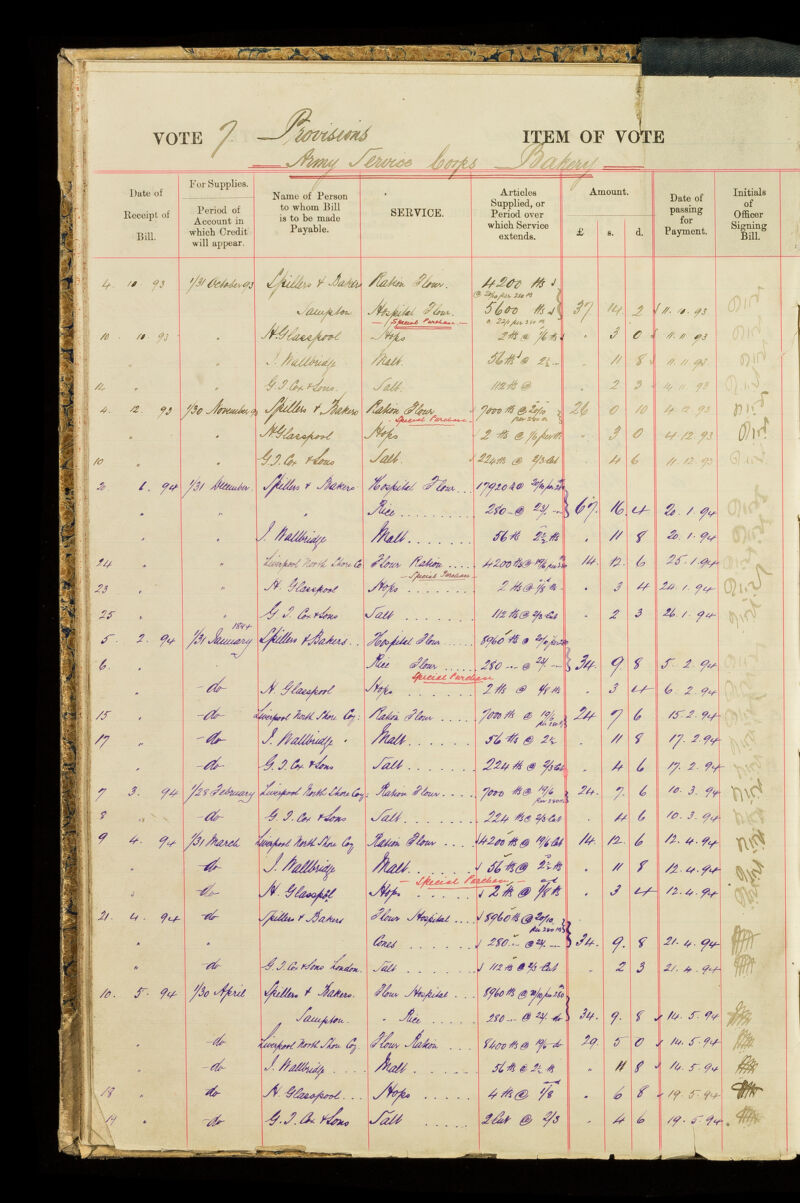 VOTE 7. Provisions ITEM OF VOTE
Army Service Corps Bakery
Date of Receipt of Bill. For Supplies. Period of Account in which Credit will appear. Name of Person to whom Bill is to be made Payable. SERVICE. Articles Supplied, or Period over which Service extends. Amount. £ s. d. Date of passing for Payment. Initials of Officer Signing Bill.
4. 10 93 1/31 October 93 Spillers & Bakers Ration Flour. 4200 lbs
@ 20/10 per 280 lbs
Sampton Hospital Flour. 5600 lbs 37 14 2 11. 10. 93
Special Purchase
10 . 10 . 93 " H. Glasspool Hops 2 lbs @ 1/6 lb " 3 0 11. 11 93
" " J. Wallbridge Malt. 56 lbs @ 2½ " 11 8 11. 11. 93
" " G. J. Cox & Sons. Salt. 112 lbs @ " 2 3 93
4. 12. 93 1/30 November 93 Spillers & Bakers Ration Flour 7000 lbs @ 20/10 per 280 lbs 26 0 10 4. 12. 93
Special Purchase
" " H Glasspool Hops 2 lbs @ 1/6 per lb " 3 0 4. 12. 93
10 " G. J. Cox & Sons Salt. 224 lbs @ 2/3 Cwt " 4 6 11. 12. 93
2. 1. 94 1/31 December. Spillers & Bakers Hospital Flour... 17920 lbs @ 20/10 per 280
" " " Rice ........ 280 - @ 24/. 67. 16. 4 20. 1. 94
" " J. Wallbridge Malt....... 56 lbs 2½ lb " 11 8 20. 1. 94
24 " " Liverpool North Shore Co Flour Ration .... 4200 lbs @ 19/6 per 280 14. 12. 6 25. 1. 94
Special Purchase
23 " " H. Glasspool Hops ....... 2 lbs @ 1/8 lb " 3 4 24. 1. 94
25 " " G. J. Cox & Sons Salt ....... 112 lbs @ 2/3 Cwt " 2 3 26. 1. 94
1894
5. 2. 94 1/31 January Spillers & Bakers.. Hospital Flour ..... 8960 lbs @ 20/10 per 280
6. " Rice Flour ..... 280 @ 24/. 34. 9 8 5. 2. 94
Special Purchase
" -do- H. Glasspool Hops ..... 2 lb @ 1/8 lb " 3 4 6. 2. 94
15 " -do- Liverpool North Shore Coy: Ration Flour .... 7000 lbs @ 19/6 per 280 lb 24 7 6 15. 2. 94
17 " -do- J. Wallbridge Malt....... 56 lbs @ 2½ " 11 8 17. 2. 94
" -do- G. J. Cox & Sons Salt....... 224 lbs @ 2/3 Cwt " 4 6 17. 2. 94
7 3. 94 1/28 February Liverpool North Shore Coy: Ration Flour.... 7000 lbs @ 19/6 per 280 lbs 24. 7. 6 10. 3. 94
8 " -do- G. J. Cox & Sons Salt....... 224 lbs @ 2/3 Cwt " 4 6 10. 3. 94
9 4. 94 1/31 March Liverpool North Shore Coy Ration Flour .... 4200 lbs @ 19/6 14. 12. 6 12. 4. 94
" -do- J. Wallbridge Malt....... 56 lbs @ 2½ lb " 11 8 12. 4. 94
Special Purchase
" -do- H. Glasspool Hops ...... 2 lb @ 1/8 lb " 3 4 12. 4. 94
21. 4. 94 -do- Spillers & Bakers Flour Hospital .... 8960 lbs @ 20/10 per 280 lbs
" " Cones ....... 280. @ 24/. 34. 9. 8 21. 4. 94
" -do- G. J. Cox & Sons London. Salt ....... 112 lbs @ 2/3 Cwt " 2 3 21. 4. 94
10. 5. 94 1/30 April Spillers & Bakers. Flour Hospital ... 8960 lbs @ 20/10 per 280
Sampton. " Rice ..... 280 @ 24/. do 34. 9. 8 14. 5. 94
" -do- Liverpool North Shore Coy. Flour Ration .... 8400 lbs @ 19/6 do 29. 5 0 14. 5. 94
" -do- J. Wallbridge .... Malt ...... 56 lb @ 2½ lb " 11 8 14. 5. 94
18 " do H. Glasspool... Hops ..... 4 lb @ 1/8 " 6 8 19. 5. 94
19 " -do- G. J. Cox & Sons Salt ...... 2 Cwt @ 2/3 " 4 6 19. 5. 94